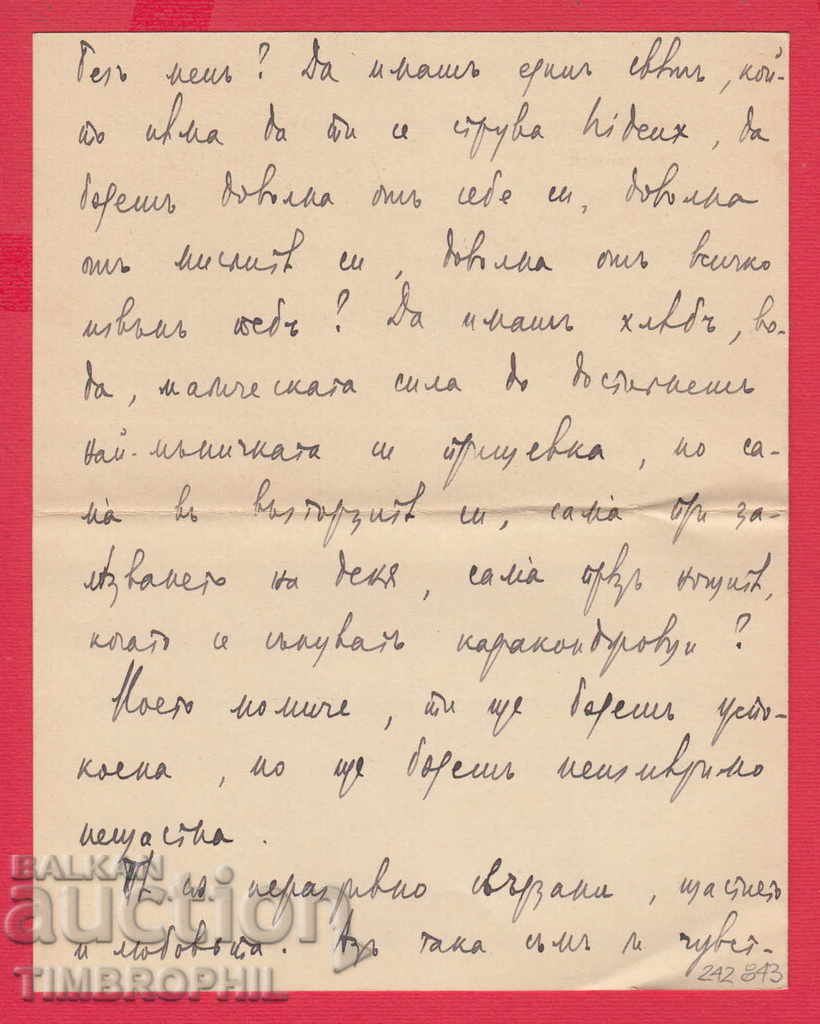 безъ менъ? Да имашъ единъ свѣтъ, кой-
то нѣма да ти се струва hideux, да
бѫдешъ доволна отъ себе си, доволна
отъ мислитѣ си, доволна отъ всичко
извънъ тебъ? Да имашъ хлѣбъ, во-
да, магическата сила да достигнешъ
най-мъничката си прищевка, но са-
ма въ възторзитѣ си, сама при за-
лѣзването на деня, сама прѣзъ нощитѣ,
когато се сънуватъ караконджовци?
Моето момиче, ти ще бѫдешъ успо-
коена, но ще бѫдешъ неизмѣримо
нещастна.
неразривно свързани, щастието
и любовьта. Азъ така съмъ и чувст-
242 843
BALKAN
auction
TIMBROPHIL